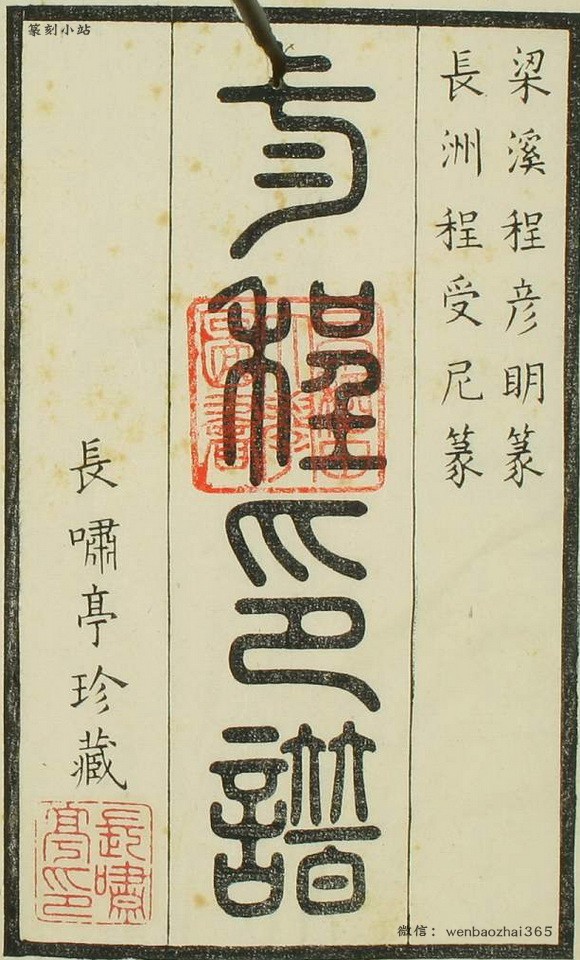 篆刻小站
梁溪程彦明篆
長洲程受尼篆
程印譜
長嘯亭珍藏
長嘯亭印
微信：wenbaozhai365